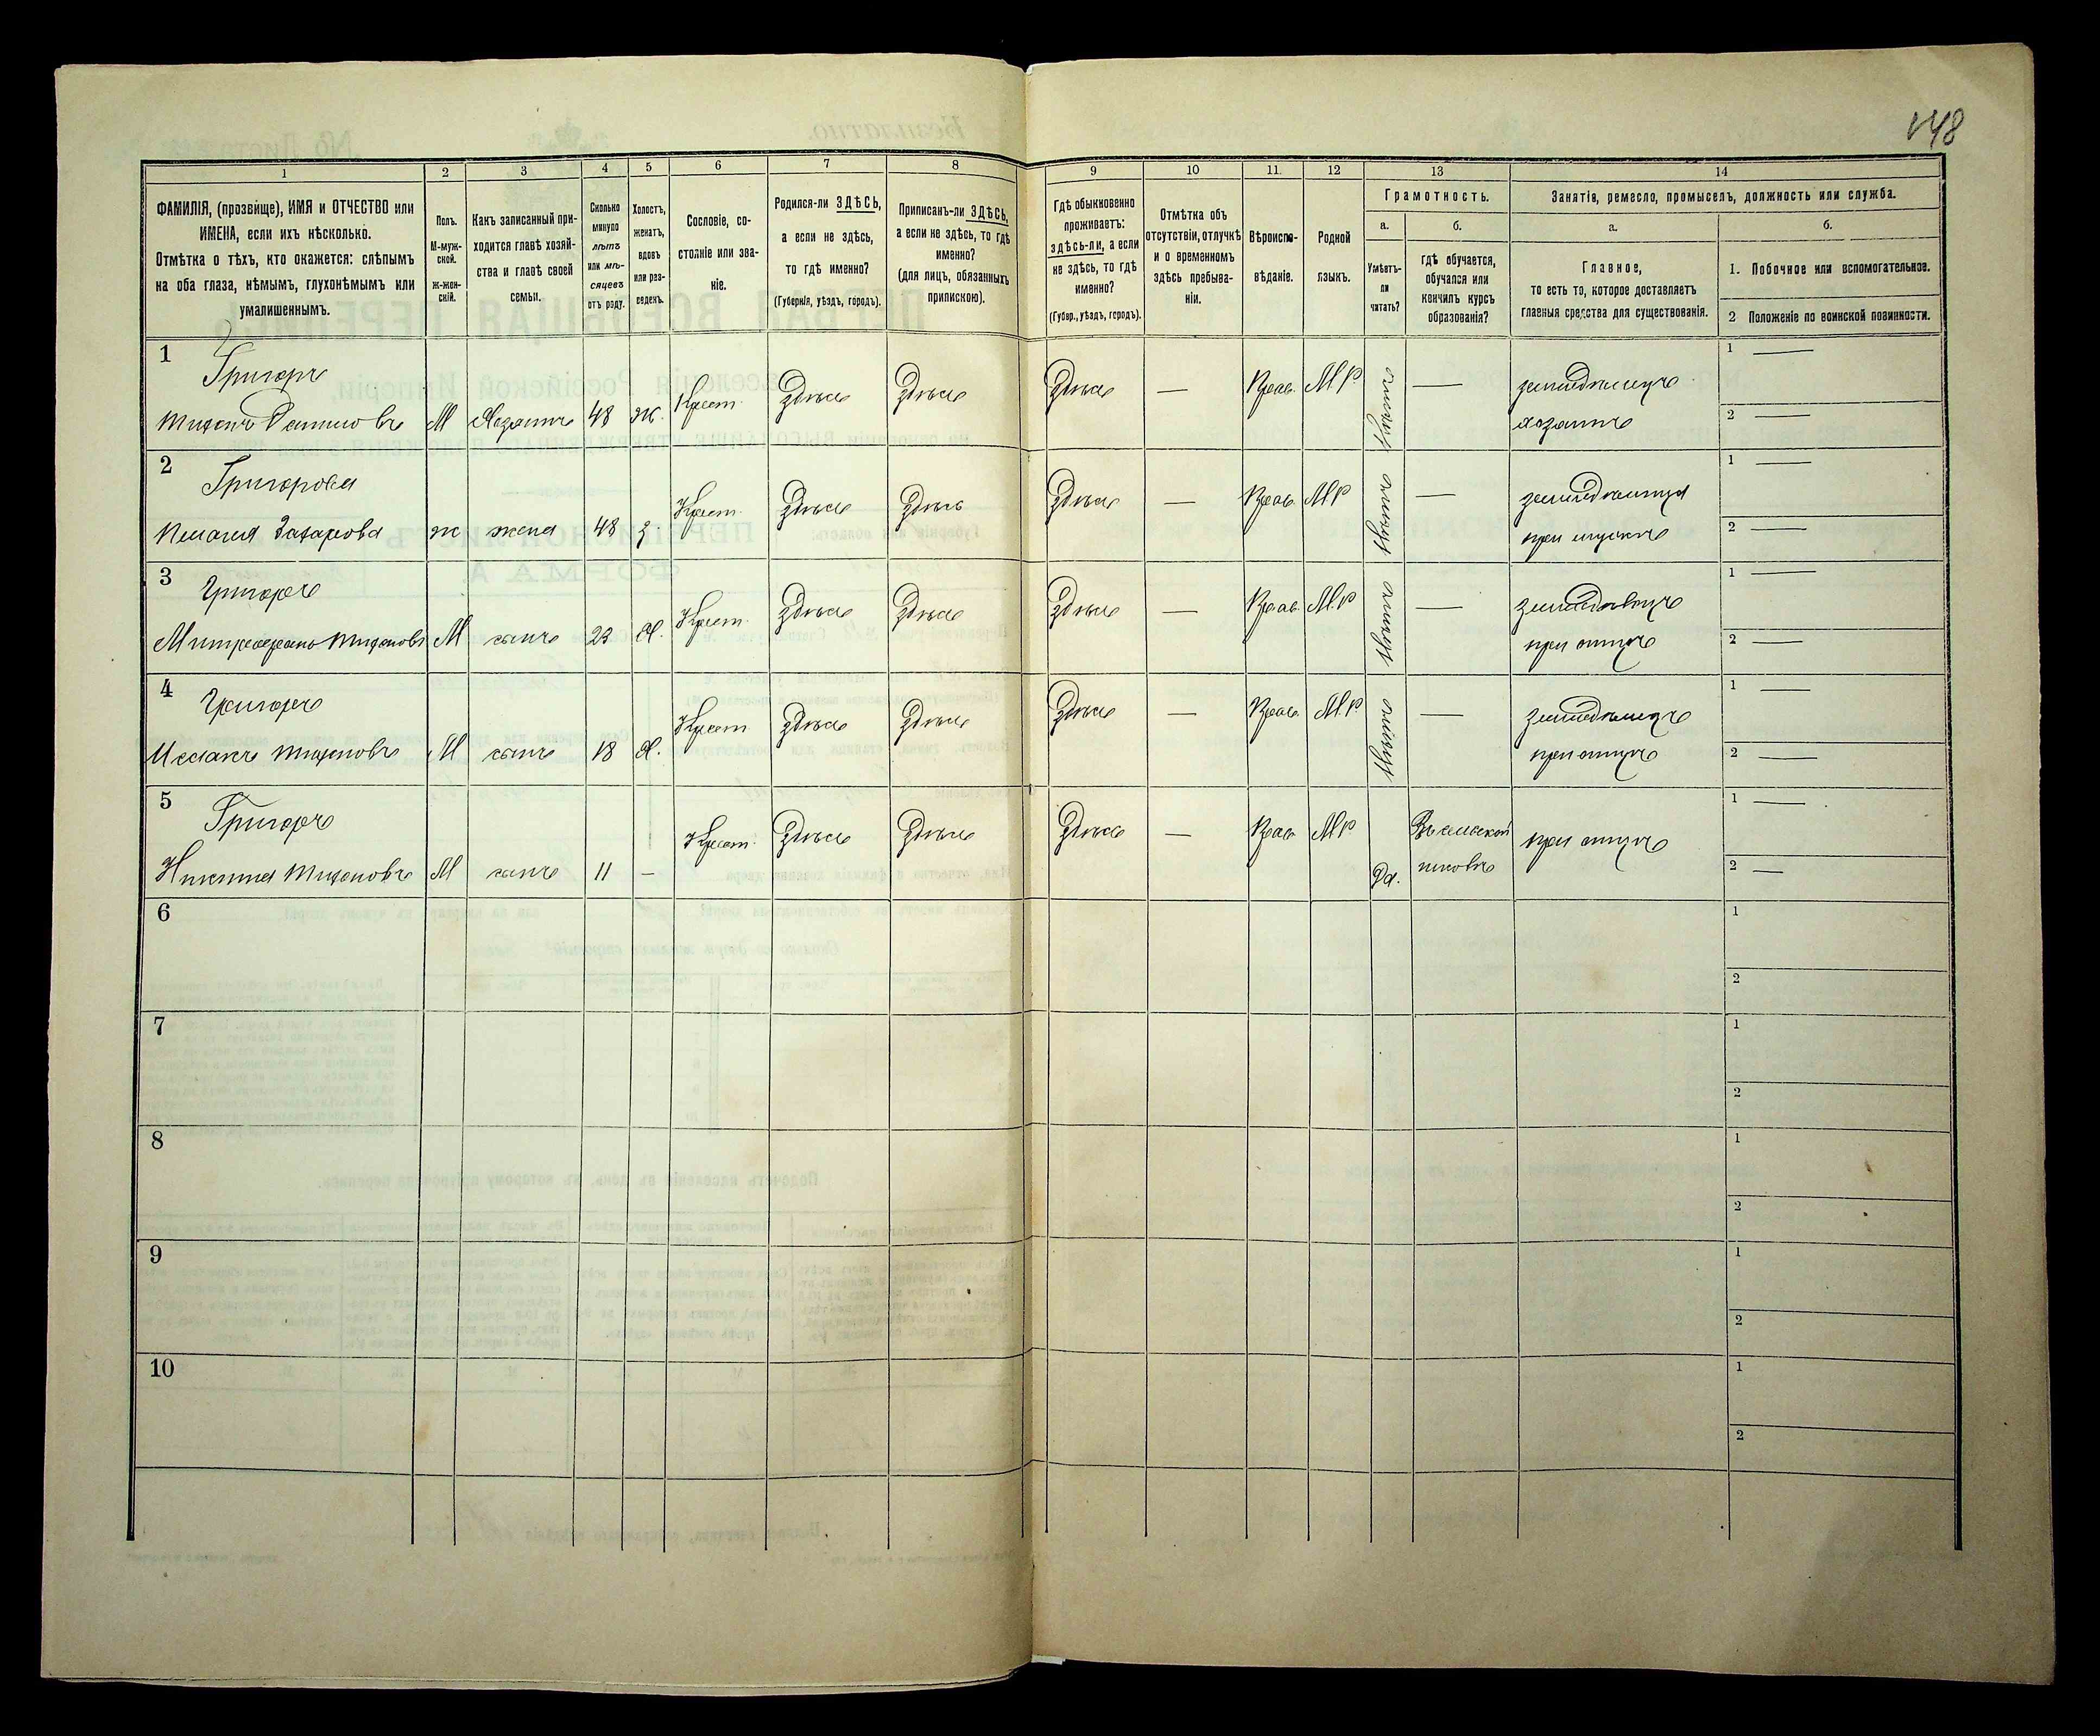 148
1 2 3 4 5 6 7 8 9 10 11. 12 13 14
ФАМИЛІЯ, (прозвище), ИМЯ и ОТЧЕСТВО или
ИМЕНА, если ихъ нѣсколько.
Отмѣтка о тѣхъ, кто окажется: слѣпымъ
на оба глаза, нѣмымъ, глухонѣмымъ или
умалишеннымъ.
Полъ.
М-муж-
ской.
Ж-жен-
скій.
Какъ записанный при-
ходится главѣ хозяй-
ства и главѣ своей
семьи.
Сколько
минуло
лѣтъ
или мѣ-
сяцевъ
отъ роду.
Холостъ,
женатъ,
вдовъ
или раз-
веденъ.
Сословіе, со-
стояніе или зва-
ніе.
Родился-ли ЗДѢСЬ,
а если не здѣсь,
то гдѣ именно?
(Губернія, уѣздъ, городъ).
Приписанъ-ли ЗДѢСЬ,
а если не здѣсь, то гдѣ
именно?
(для лицъ, обязанныхъ
припискою).
Гдѣ обыкновенно
проживаетъ:
здѣсь-ли, а если
не здѣсь, то гдѣ
именно?
(Губер., уѣздъ, городъ).
Отмѣтка объ
отсутствіи, отлучкѣ
и о временномъ
здѣсь пребыва-
ніи.
Вѣроиспо-
вѣданіе.
Родной
языкъ.
Грамотность.
а.
Умѣетъ-
ли
читать?
б.
гдѣ обучается,
обучался или
кончилъ курсъ
образованія?
Занятіе, ремесло, промыселъ, должность или служба.
а.
Главное,
то есть то, которое доставляетъ
главныя средства для существованія.
б.
1. Побочное или вспомогательное.
2 Положеніе по воинской повинности.
1 Григоръ
М Хозяинъ 48 ж. Крест. Здѣсь Здѣсь Здѣсь — Прав. М.Р. земледѣлецъ 1 —
хозяинъ 2 —
2 Григорова
Пелагея Захарова ж жена 48 з. Крест. Здѣсь Здѣсь Здѣсь — Прав. М.Р — 1 —
при мужѣ 2 —
3 Григоръ
Митрофанъ М сынъ 23 х. Крест. Здѣсь Здѣсь Здѣсь — Прав. М.Р — земледѣлецъ 1 —
при отцѣ 2 —
4 Григоръ
М сынъ 18 х. Крест. Здѣсь Здѣсь Здѣсь — Прав. М.Р. — земледѣлецъ 1 —
при отцѣ 2 —
5 Григоръ
Никита М сынъ 11 — Крест. Здѣсь Здѣсь Здѣсь — Прав. М.Р Да. Въ сельской при отцѣ 1 —
школѣ 2 —
6 1
2
7 1
2
8 1
2
9 1
2
10 1
2